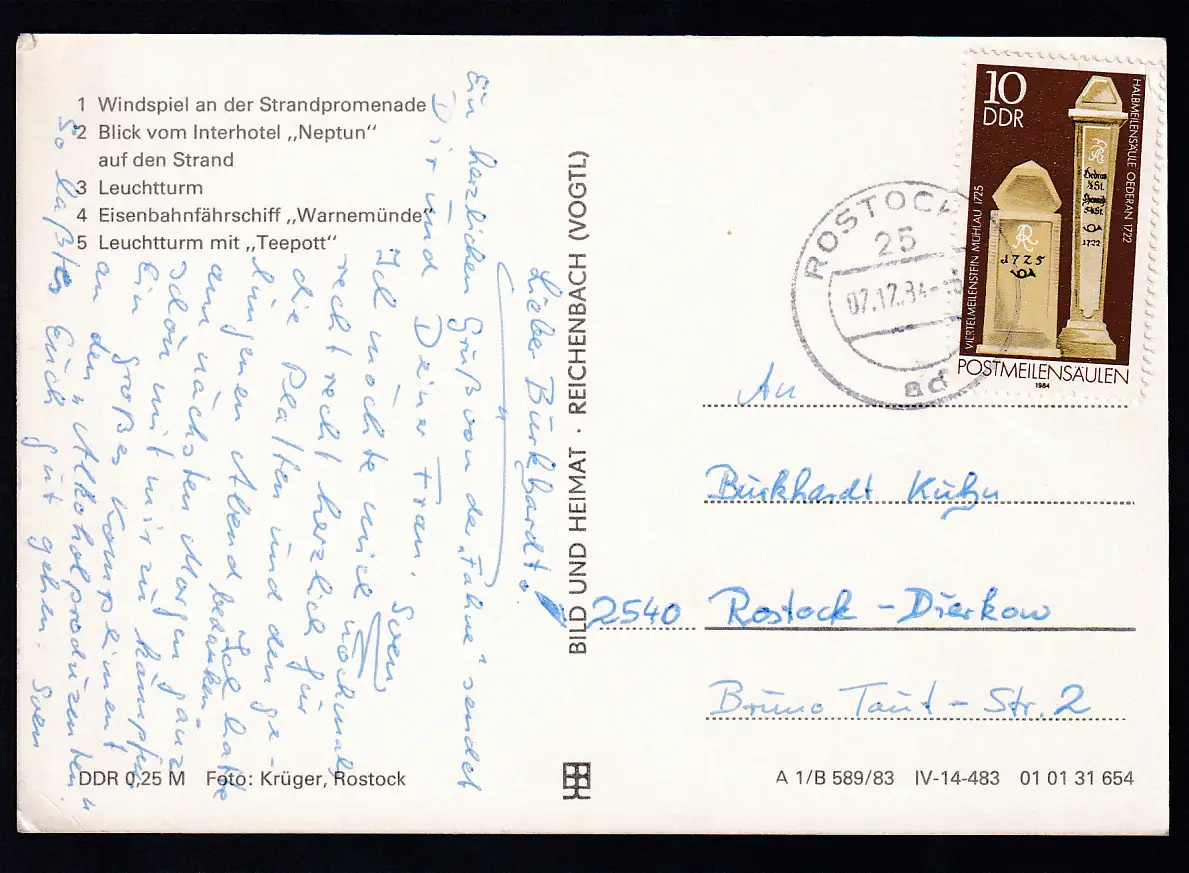 1 Windspiel an der Strandpromenade
2 Blick vom Interhotel „Neptun"
auf den Strand
3 Leuchtturm
4 Eisenbahnfährschiff „Warnemünde"
5 Leuchtturm mit „Teepott"
Lieber Burkhardt!
Ein herzlichen Gruß von der „Fahne" sendet
Dir und Deiner Frau. Sven
Ich möchte mich nochmals
recht recht herzlich für
die Platten und den ge-
lungenen Abend bedanken.
Ich hatte
am nächsten Morgen ganz
schön mit mir zu kämpfen
Ein großes Kompliment
an den „Alkoholproduzenten"
So laßt es Euch gut gehen. Sven
DDR 0,25 M Foto: Krüger, Rostock
BILD UND HEIMAT · REICHENBACH (VOGTL)
10
DDR
HALBMEILENSÄULE OEDERAN 1722
VIERTELMEILENSTEIN MÜHLAU 1725
AR
1725
AR
1722
POSTMEILENSÄULEN
1984
ROSTOCK
25
07.12.84
ad
An
Burkhardt Kuhn
2540 Rostock - Dierkow
Bruno Taut - Str. 2
A 1/B 589/83 IV-14-483 01 01 31 654